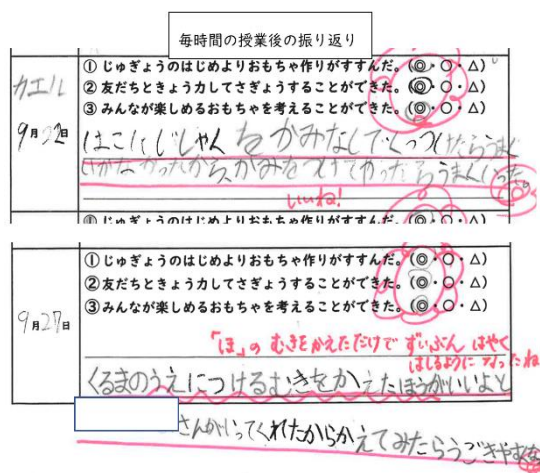 毎時間の授業後の振り返り
カエル
9月22日
① じゅぎょうのはじめよりおもちゃ作りがすすんだ。(◎・○・△)
② 友だちときょう力してさぎょうすることができた。(◎・○・△)
③ みんなが楽しめるおもちゃを考えることができた。(◎・○・△)
はこにじしゃくをかみなしでくっつけたらうまく
いかなかったから、かみをつけてやったらうまくいった。
いいね!
① じゅぎょうのはじめよりおもちゃ作りがすすんだ。(◎・○・△)
9月27日
① じゅぎょうのはじめよりおもちゃ作りがすすんだ。(◎・○・△)
② 友だちときょう力してさぎょうすることができた。(◎・○・△)
③ みんなが楽しめるおもちゃを考えることができた。(◎・○・△)
「ほ」のむきをかえただけで ずいぶん はやく
はしるように なったね
くるまのうえにつけるむきをかえたほうがいいよと
さんがいってくれたからかえてみたらうごきやすくな